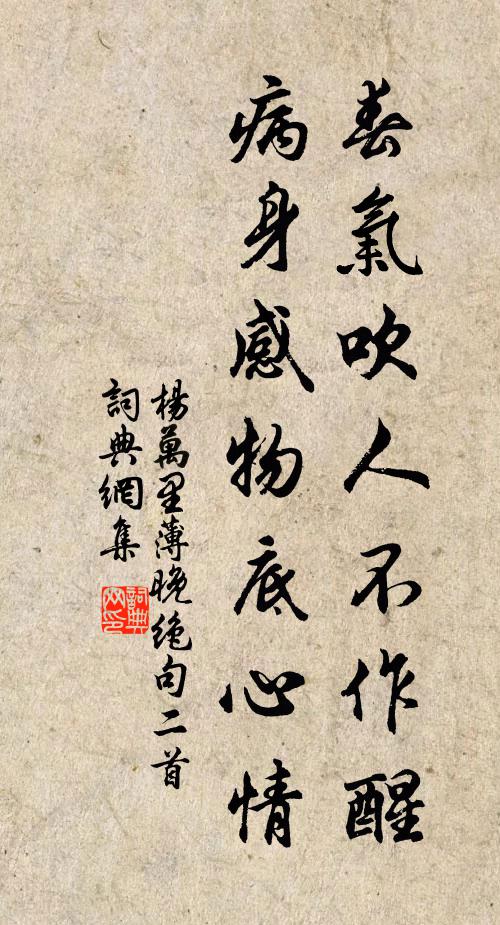 春氣吹人不作醒
病身感物底心情
楊萬里薄晚絶句二首
詞典網集
詞典
网印